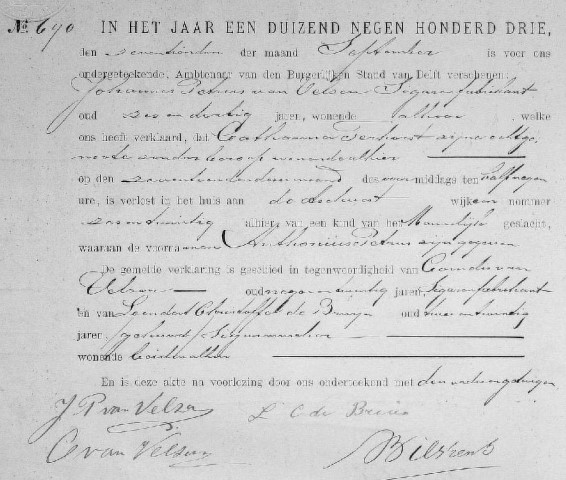 No 690 IN HET JAAR EEN DUIZEND NEGEN HONDERD DRIE,
den zeventienden der maand September is voor ons
ondergeteekende, Ambtenaar van den Burgerlijken Stand van Delft verschenen:
Johannes Petrus van Velzen, Sigarenfabrikant
oud zes en dertig jaren, wonende alhier, welke
ons heeft verklaard, dat Catharina zijne echtge-
noote zonder beroep wonende alhier
op den zeventienden dezer maand des voor middags ten half negen
ure, is verlost in het huis aan de wijk nommer
alhier, van een kind van het Mannelijk geslacht,
waaraan de voornamen Anthonius Petrus zijn gegeven
De gemelde verklaring is geschied in tegenwoordigheid van van
Velzen oud negen en twintig jaren, Sigarenfabrikant
en van Leendert Christoffel de Bruijn oud twee en twintig
jaren, Sigarenmaker
wonende beiden alhier
En is deze akte na voorlezing door ons onderteekend met den
J P van Velzen L C de Bruin
C van Velzen